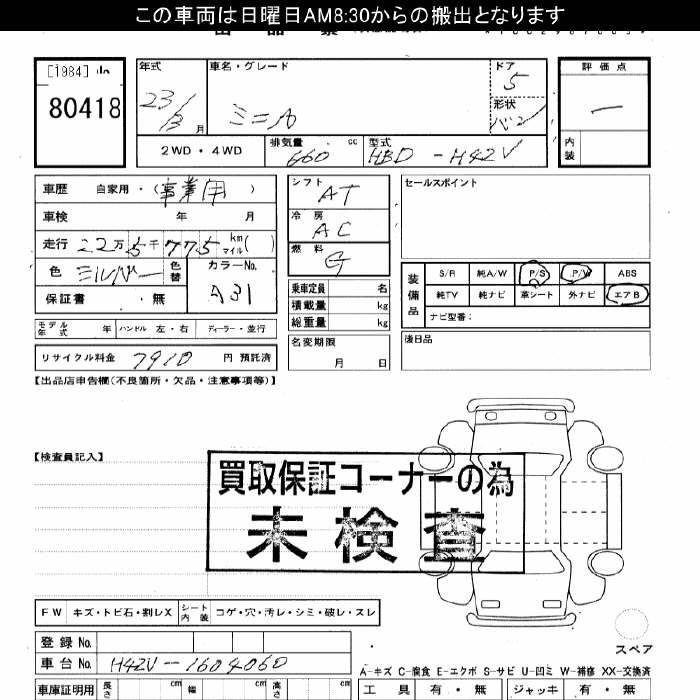 この車両は日曜日AM8:30からの搬出となります
[1984]
80418
年式 車名・グレード ドア 評価点
23/3月 ミニカ 5 —
形状 バン
2WD・4WD 排気量 660 cc 型式 HBD-H42V 内装
車歴 自家用・(事業用) シフト AT セールスポイント
車検 年 月 冷房 AC
走行 22万5千775 km マイル ( ) 燃料 G
色 シルバー 色替 カラーNo. A31
装備品 S/R 純A/W P/S P/W ABS
純TV 純ナビ 革シート 外ナビ エアB
ナビ型番:
保証書 ・無 乗車定員 名
積載量 kg
総重量 kg
モデル年式 年 ハンドル 左・右 ディーラー・並行 名変期限 月 日 後日品
リサイクル料金 7910 円 預託済
【出品店申告欄(不良箇所・欠品・注意事項等)】
【検査員記入】
買取保証コーナーの為
未検査
FW キズ・トビ石・割レX シート内装 コゲ・穴・汚レ・シミ・破レ・スレ
登録No.
スペア
車台No. H42V-1604060
A-キズ C-腐食 E-エクボ S-サビ U-凹ミ W-補修 XX-交換済
車庫証明用 長さ cm 幅 cm 高さ cm 工具 有・無 ジャッキ 有・無